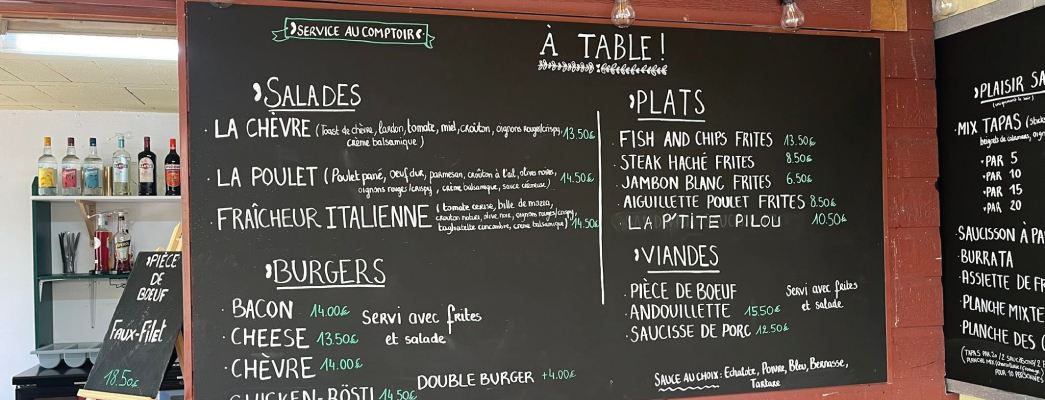 SERVICE AU COMPTOIR
À TABLE!
SALADES
· LA CHÈVRE (Toast de chèvre, lardon, tomate, miel, croûton, oignons rouges/crispy, 13.50€
crème balsamique)
· LA POULET (Poulet pané, oeuf dur, parmesan, croûton à l'ail, olives noires, 14.50€
oignons rouges/crispy, crème balsamique, sauce crémeuse)
· FRAÎCHEUR ITALIENNE (tomate cerise, bille de mozza,
crouton nature, olive noire, oignons rouges/crispy,
tagliatelle concombre, crème balsamique) 14.50€
BURGERS
· BACON 14.00€
· CHEESE 13.50€
· CHÈVRE 14.00€
· CHICKEN-RÖSTI 14.50€
Servi avec frites
et salade
DOUBLE BURGER +4.00€
PLATS
· FISH AND CHIPS FRITES 13.50€
· STEAK HACHÉ FRITES 8.50€
· JAMBON BLANC FRITES 6.50€
· AIGUILLETTE POULET FRITES 8.50€
· LA P'TITE PILOU 10.50€
VIANDES
· PIÈCE DE BOEUF
· ANDOUILLETTE 15.50€
· SAUCISSE DE PORC 12.50€
Servi avec frites
et salade
SAUCE AU CHOIX: Echalote, Poivre, Bleu, Bernasse,
Tartare
PIÈCE
DE
BOEUF
FAUX-FILET
18.50€
PLAISIR SA
· MIX TAPAS
· PAR 5
· PAR 10
· PAR 15
· PAR 20
· SAUCISSON À PA
· BURRATA
· ASSIETTE DE FR
· PLANCHE MIXTE
· PLANCHE DES